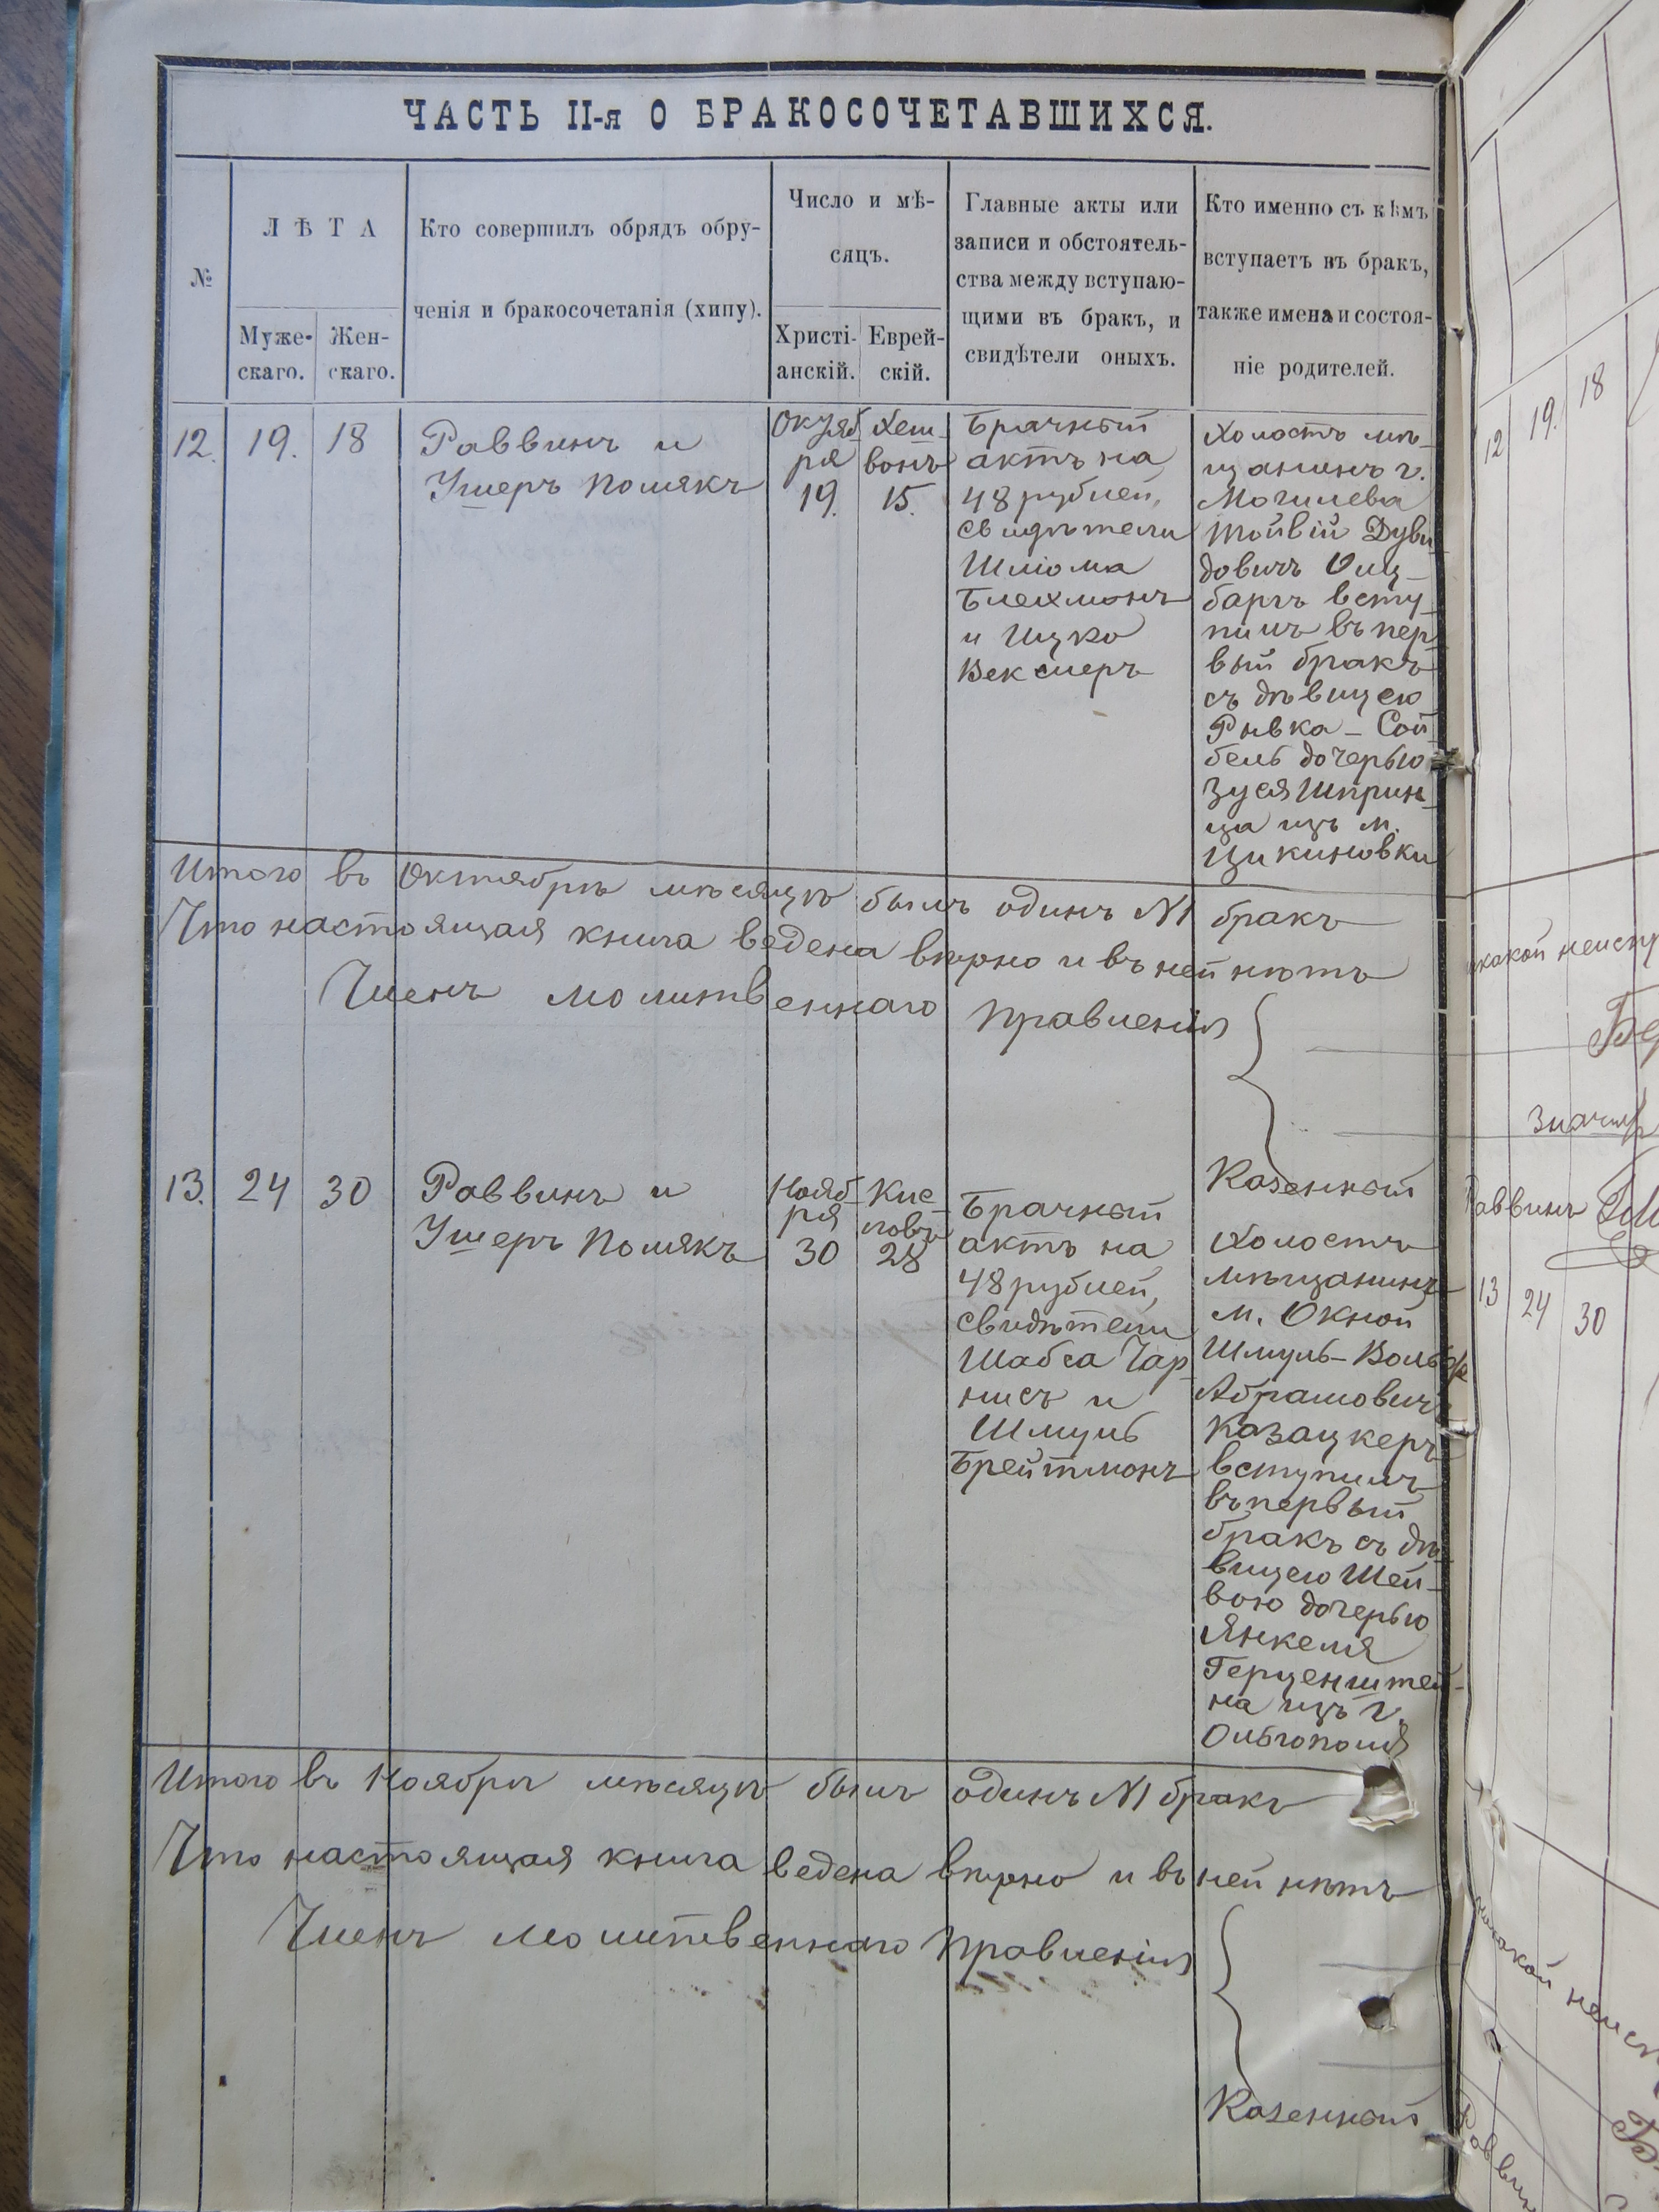 ЧАСТЬ II-я О БРАКОСОЧЕТАВШИХСЯ.
№
ЛѢТА
Муже-
скаго.
Жен-
скаго.
Кто совершилъ обрядъ обру-
ченія и бракосочетанія (хипу).
Число и мѣ-
сяцъ.
Христі-
анскій.
Еврей-
скій.
Главные акты или
записи и обстоятель-
ства между вступаю-
щими въ бракъ, и
свидѣтели оныхъ.
Кто именно съ кѣмъ
вступаетъ въ бракъ,
также имена и состоя-
ніе родителей.
12.
19.
18
Раввинъ и
Ушеръ Полякъ
Октяб
ря
19.
Хеш-
вонъ
15.
Брачный
актъ на
48 рублей,
свидѣтели
Шліома
Блехманъ
и Ицко
Векслеръ
Холостъ мѣ-
щанинъ г.
Могилева
Тойвій Дуви-
довичъ
баргъ всту-
пилъ въ пер
вый бракъ
съ дѣвицею
Рывка-Сой-
бель дочерью
Зуся Шприн-
ца изъ м.
Цикиновки
Итого въ Октябрѣ мѣсяцѣ былъ одинъ №1 бракъ
Что настоящая книга ведена вѣрно и въ ней нѣтъ
Членъ молитвеннаго правленія
Казенный
13.
24
30
Раввинъ и
Ушеръ Полякъ
Нояб
ря
30
Кис-
ловъ
28
Брачный
актъ на
48 рублей,
свидѣтели
Шабса Чар
нисъ и
Шмуль
Брейтманъ
Холостъ
мѣщанинъ
м. Окной
Шмуль-Вольфъ
Абрамовичъ
Казацкеръ
вступилъ
въ первый
бракъ съ дѣ-
вицею Шей-
вою дочерью
Янкеля
Герценштей-
на изъ г.
Ольгополя
Итого въ Ноябрѣ мѣсяцѣ былъ одинъ №1 бракъ
Что настоящая книга ведена вѣрно и въ ней нѣтъ
Членъ молитвеннаго правленія
Казенный
12
19.
18
Раввинъ
13
24
30